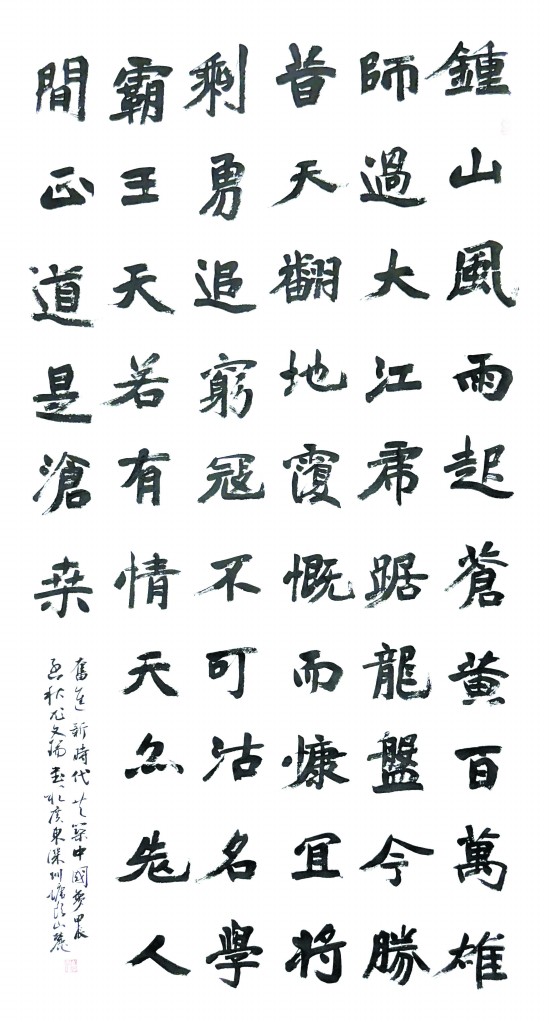 鍾山風雨起蒼黄百萬雄
師過大江虎踞龍盤今勝
昔天翻地覆慨而慷宜將
剩勇追窮寇不可沽名學
霸王天若有情天亦老人
間正道是滄桑
奮進新時代共築中國夢甲辰
孟秋尤文書於廣東深圳山麓